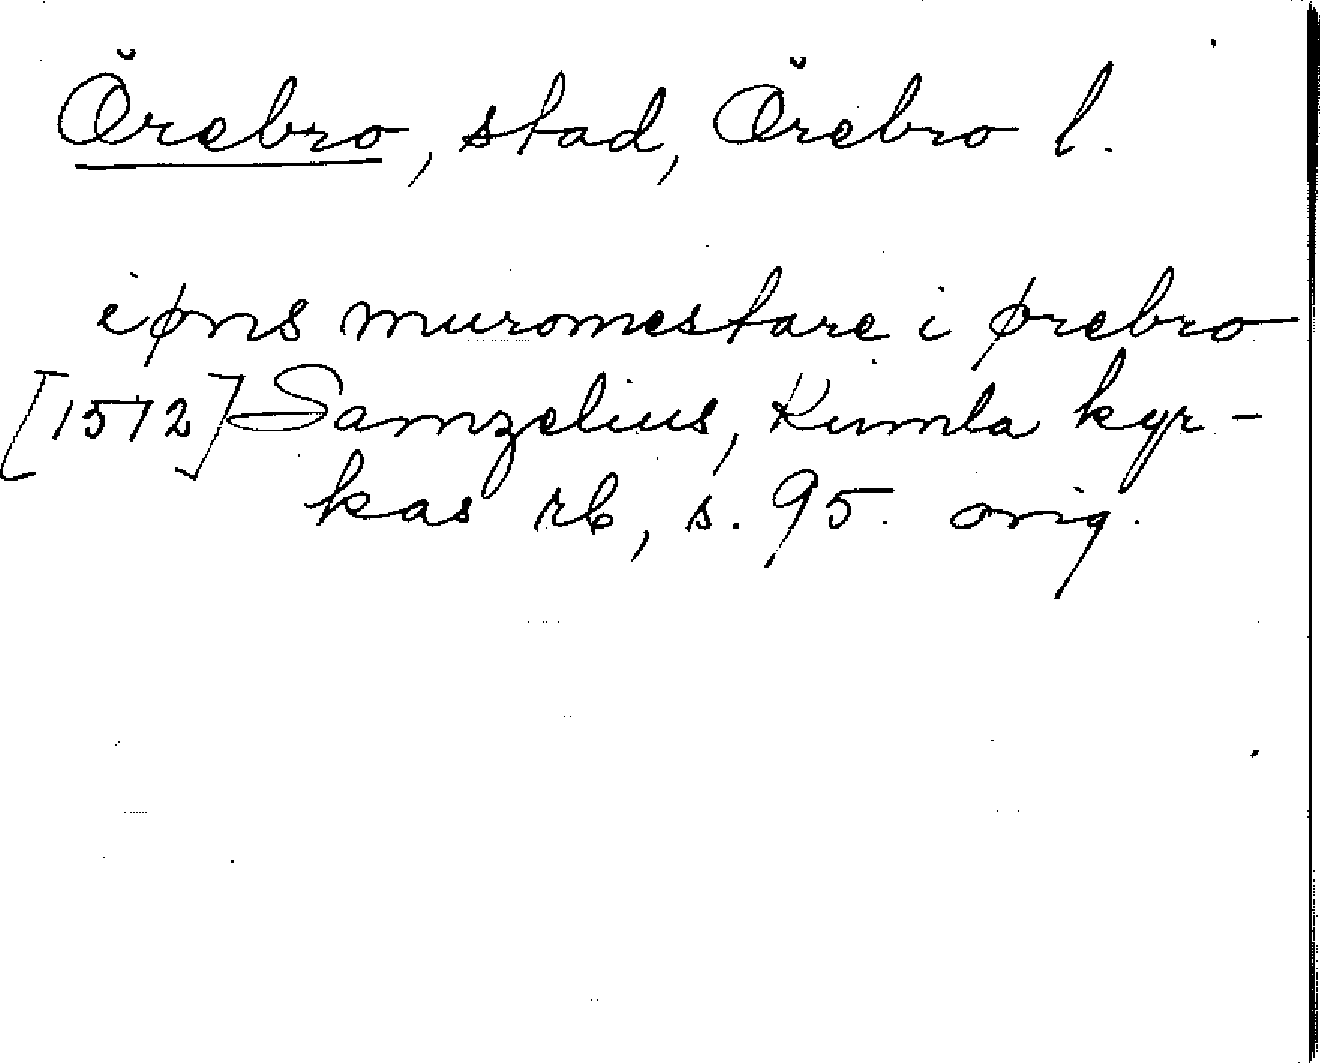 Örebro, stad, Örebro l.
iøns muromestare i ørebro
[1572] Samzelius, Kumla kyr-
kas rb, s. 95. orig.